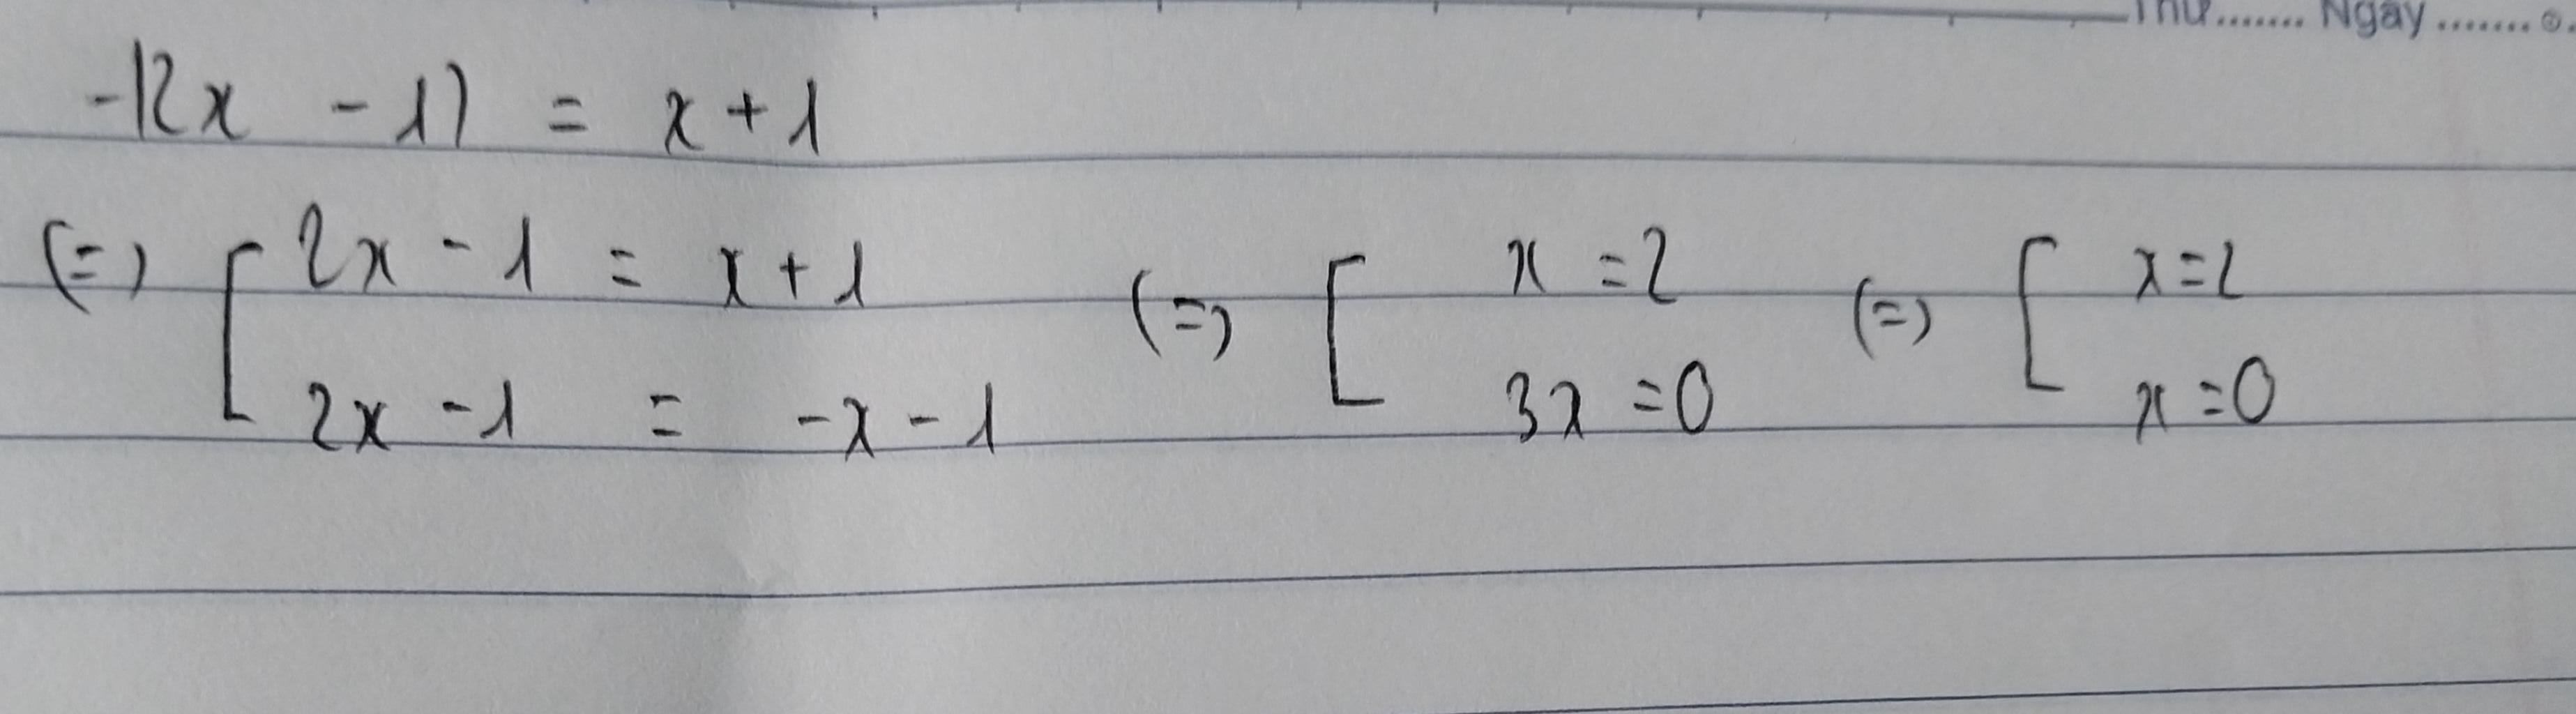 Thứ....... Ngày.......
-|2x - 1| = x + 1
(=) [ 2x - 1 = x + 1 (=) [ x = 2 (=) [ x = 2
2x - 1 = -x - 1 3x = 0 x = 0